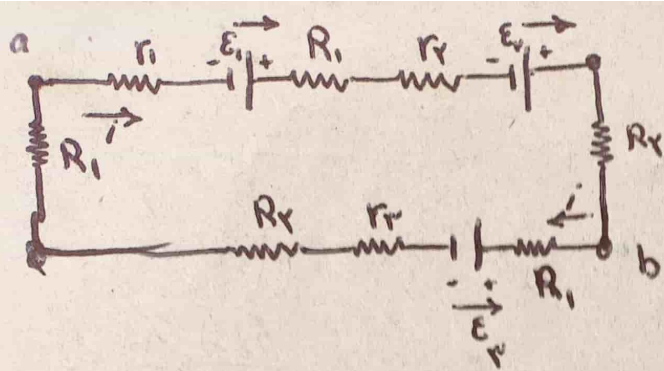 a
r₁ - ε₁ + R₁ r۲ - ε۲ +
R₁ i R۲
R۲ r۳ - + R₁ i b
ε۳